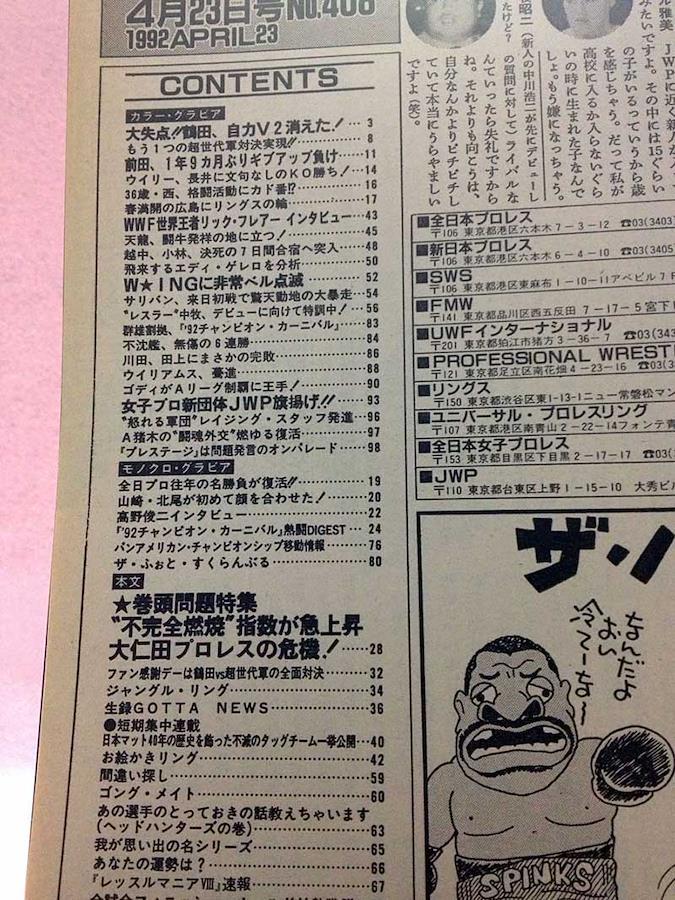 4月23日号No.408
1992 APRIL 23
CONTENTS
カラー・グラビア
大失点!!鶴田、自力V2消えた!… 3
もう1つの超世代軍対決実現!!…… 8
前田、1年9カ月ぶりギブアップ負け……11
ウイリー、長井に文句なしのKO勝ち!…14
36歳・西、格闘活動にカド番!?………16
春満開の広島にリングスの輪…………17
WWF世界王者リック・フレアー インタビュー…43
天龍、闘牛発祥の地に立つ!…………45
越中、小林、決死の7日間合宿へ突入……48
飛来するエディ・ゲレロを分析…………50
W★INGに非常ベル点滅……… 52
サリバン、来日初戦で驚天動地の大暴走…54
"レスラー"中牧、デビューに向けて特訓中!…56
群雄割拠、「'92チャンピオン・カーニバル」……83
不沈艦、無傷の6連勝……………………84
川田、田上にまさかの完敗………………86
ウイリアムス、驀進………………………88
ゴディがAリーグ制覇に王手!…………90
女子プロ新団体JWP旗揚げ!!……93
"怒れる軍団"レイジング・スタッフ発進…96
A猪木の"闘魂外交"燃ゆる復活…………97
『プレステージ』は問題発言のオンパレード……98
モノクロ・グラビア
全日プロ往年の名勝負が復活!!…………19
山崎・北尾が初めて顔を合わせた!……20
高野俊二インタビュー……………………22
『'92チャンピオン・カーニバル』熱闘DIGEST…24
パンアメリカン・チャンピオンシップ移動情報……76
ザ・ふぉと・すくらんぶる………………80
本文
★巻頭問題特集
"不完全燃焼"指数が急上昇
大仁田プロレスの危機!……28
ファン感謝デーは鶴田vs超世代軍の全面対決………32
ジャングル・リング………………………34
生録GOTTA NEWS……………36
●短期集中連載
日本マット40年の歴史を飾った不滅のタッグチーム一挙公開…40
お絵かきリング……………………………42
間違い探し…………………………………59
ゴング・メイト……………………………60
あの選手のとっておきの話教えちゃいます
(ヘッドハンターズの巻)………………63
我が思い出の名シリーズ…………………65
あなたの運勢は?…………………………66
『レッスルマニアⅧ』速報…………………67
ル雅美 JWPに近く新人
みたいですよ。その中には15ぐらい
の子がいるっていうから歳
を感じちゃう。だって私が
高校に入るか入らないぐら
いの時に生まれた子なんで
しょ。もう嫌になっちゃう。
昭二（新人の中川浩二が先にデビューし
たけど?
の質問に対して）ライバルな
んていったら失礼ですから
ね。それよりも向こうは、
自分なんかよりピチピチし
ていて本当にうらやましい
ですよ（笑）。
■全日本プロレス
〒106 東京都港区六本木7-3-12 ☎03(3403)
■新日本プロレス
〒106 東京都港区六本木6-4-10 ☎03(3405)
■SWS
〒106 東京都港区東麻布1-10-11アベビル7F
■FMW
〒141 東京都品川区西五反田7-17-5宮下
■UWFインターナショナル
〒201 東京都狛江市猪方3-36-7 ☎03(343
■PROFESSIONAL WREST
〒121 東京都足立区南花畑4-23-16 ☎03(3
■リングス
〒150 東京都渋谷区東1-13-1ニュー常盤松マン
■ユニバーサル・プロレスリング
〒107 東京都港区南青山2-22-14フォンテ青
■全日本女子プロレス
〒153 東京都目黒区下目黒2-17-17 ☎03(
■JWP
〒110 東京都台東区上野1-15-10 大秀ビル
ザ・
なんだよ
おい
冷てーなー
SPINKS